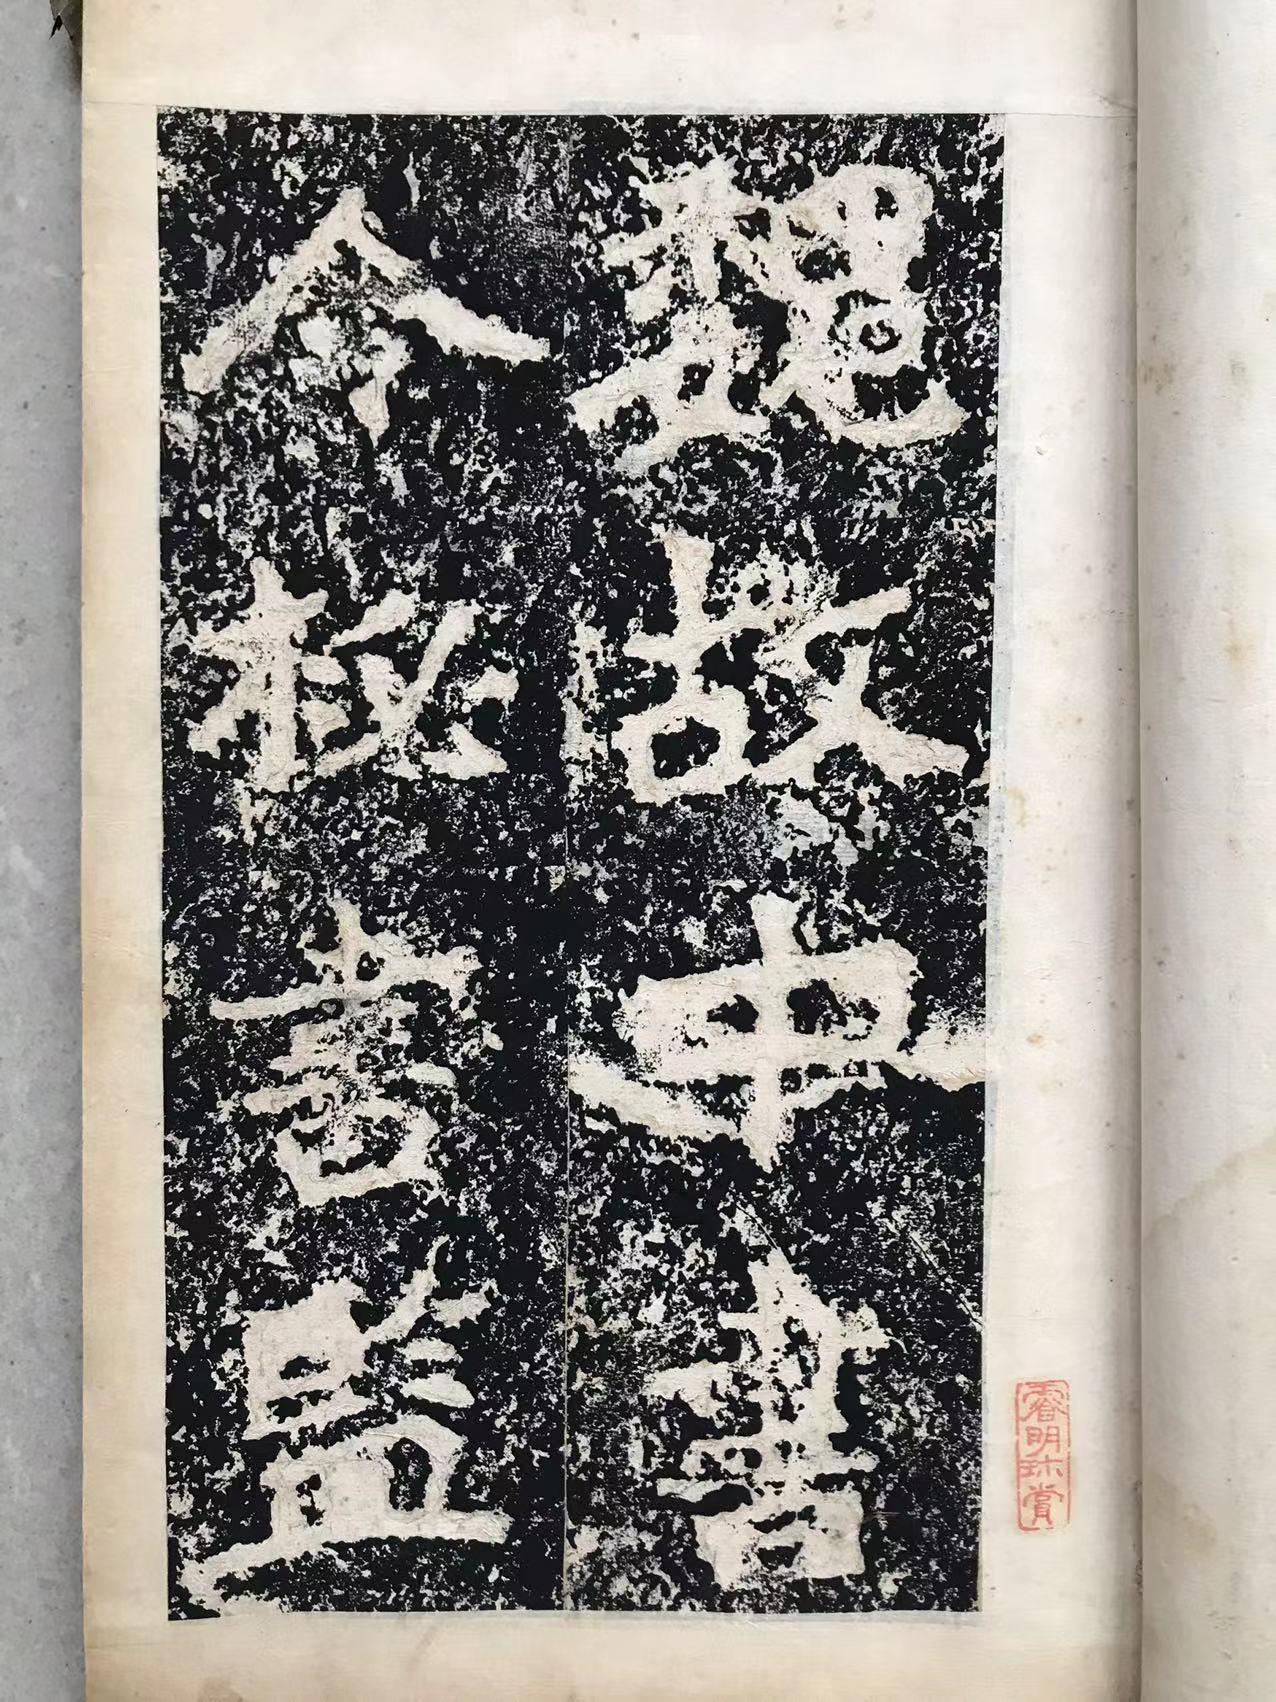 魏故中書
令秘書監
睿明珎賞